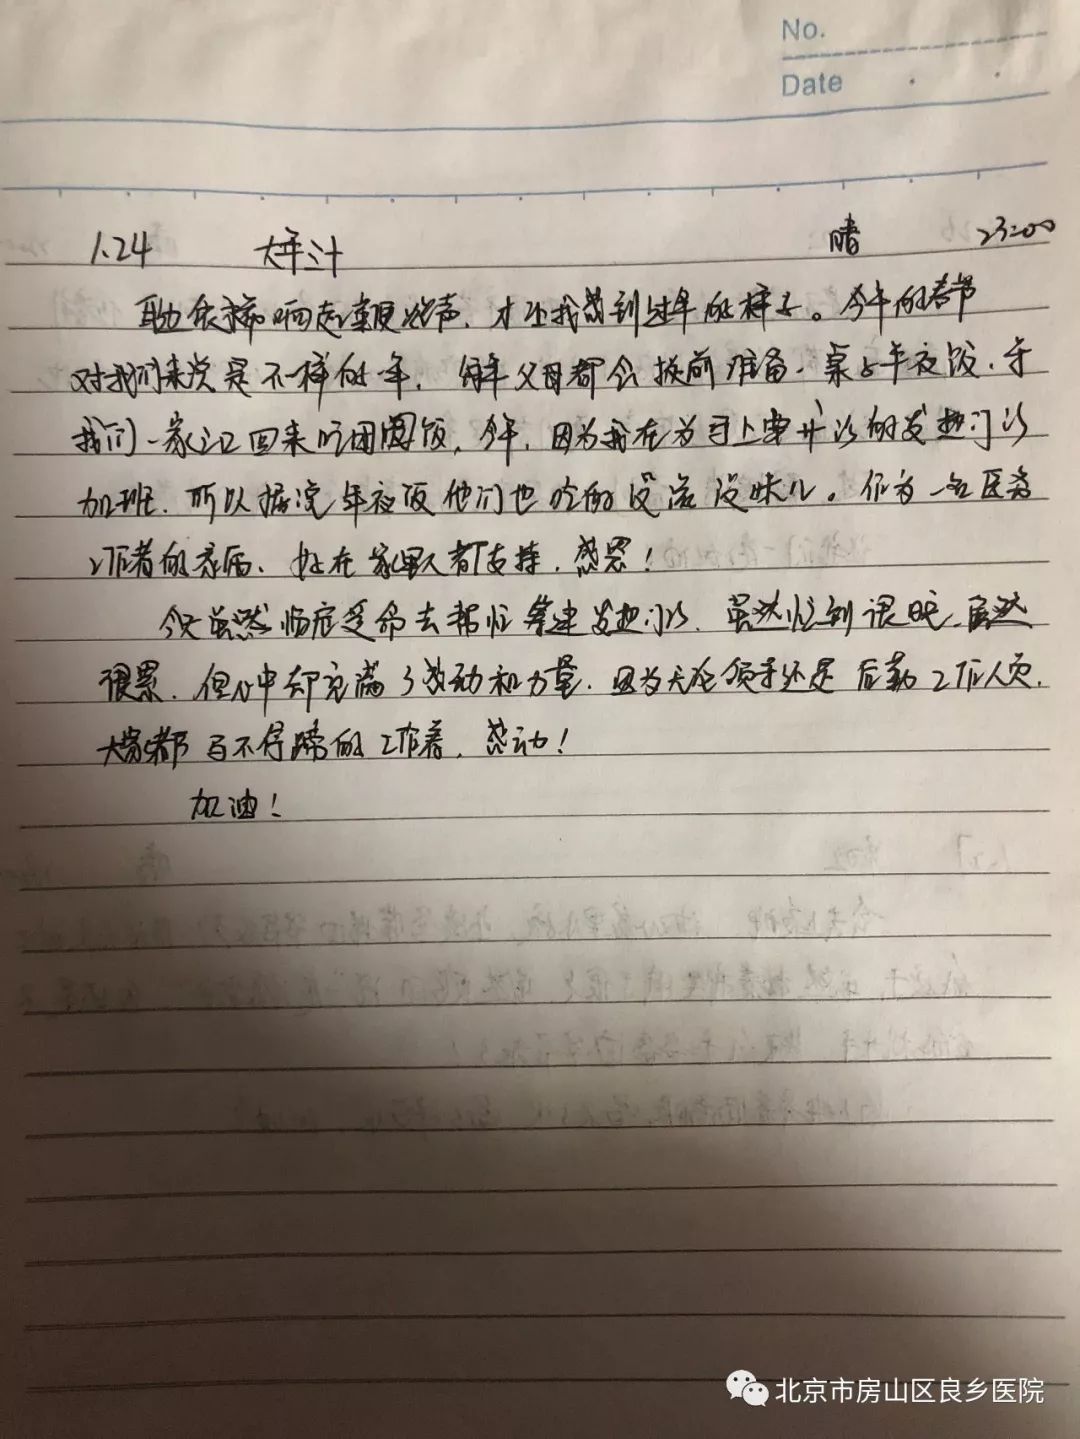 No.
Date
1.24 大年三十 晴 23:00
响起鞭炮声，才让我感到过年的样子。今年的春节
对我们来说是不一样的一年，每年父母都会提前准备一桌子年夜饭，等
我们一家三口回来吃团圆饭，今年，因为我在为马上要开诊的发热门诊
加班，所以据说年夜饭他们也吃的没滋没味儿。作为一名医务
工作者的家属，好在家里人都支持，感恩！
今天虽然临危受命去帮忙筹建发热门诊，虽然忙到很晚，虽然
很累，但心中却充满了感动和力量，因为无论领导还是后勤工作人员，
大家都马不停蹄的工作着，感动！
加油！
北京市房山区良乡医院